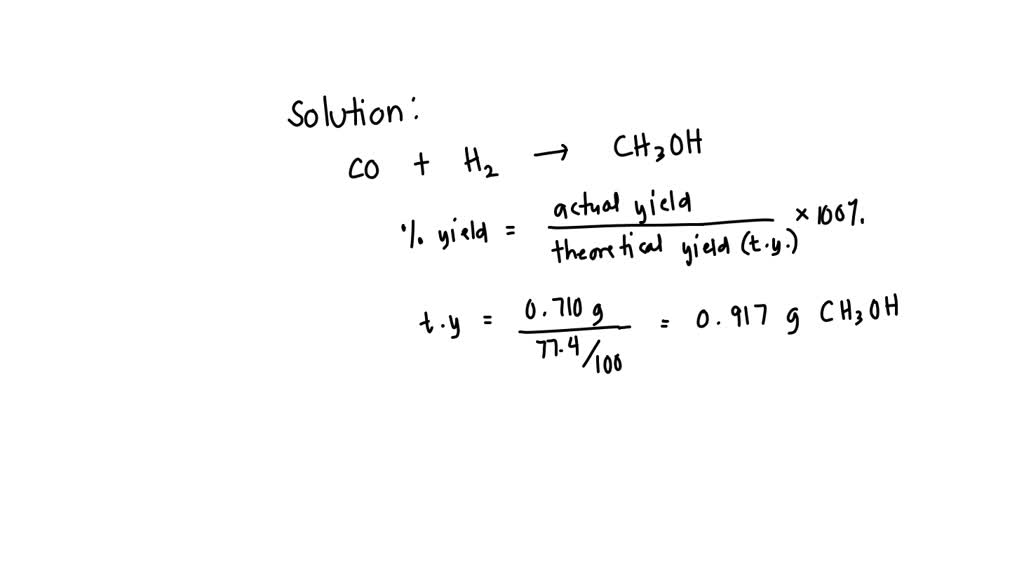 Solution:
CO + H₂ → CH₃OH
% yield = actual yield / theoretical yield (t.y.) × 100%.
t.y = 0.710 g / 77.4/100 = 0.917 g CH₃OH